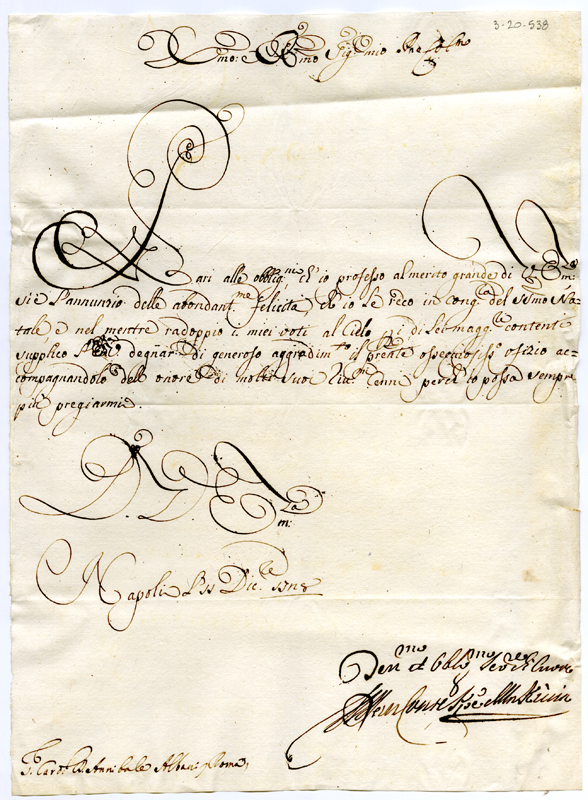 3-20-538
Emo: e Rmo Sig:r mio Pne Col:mo
Pari alle obblig:ni ch'io professo al merito grande di V. Em:za
sie l'annunzio delle abondant:me felicità, che io le reco in cong:ra del SSmo Na-
tale, e nel mentre radoppio i miei voti al Cielo di Lei magg:re contenti
supplico degnar di generoso aggradim:to il pre:nte ossequiosiss:o ofizio ac-
compagnandolo dell'onore di molti suoi com:ti perch'io possa sempre
più pregiarmi.
D. V. Em:za
Napoli Dic:re 1718
Dev:mo et Obb:mo Ser:re
Car:l Annibale Albani Roma